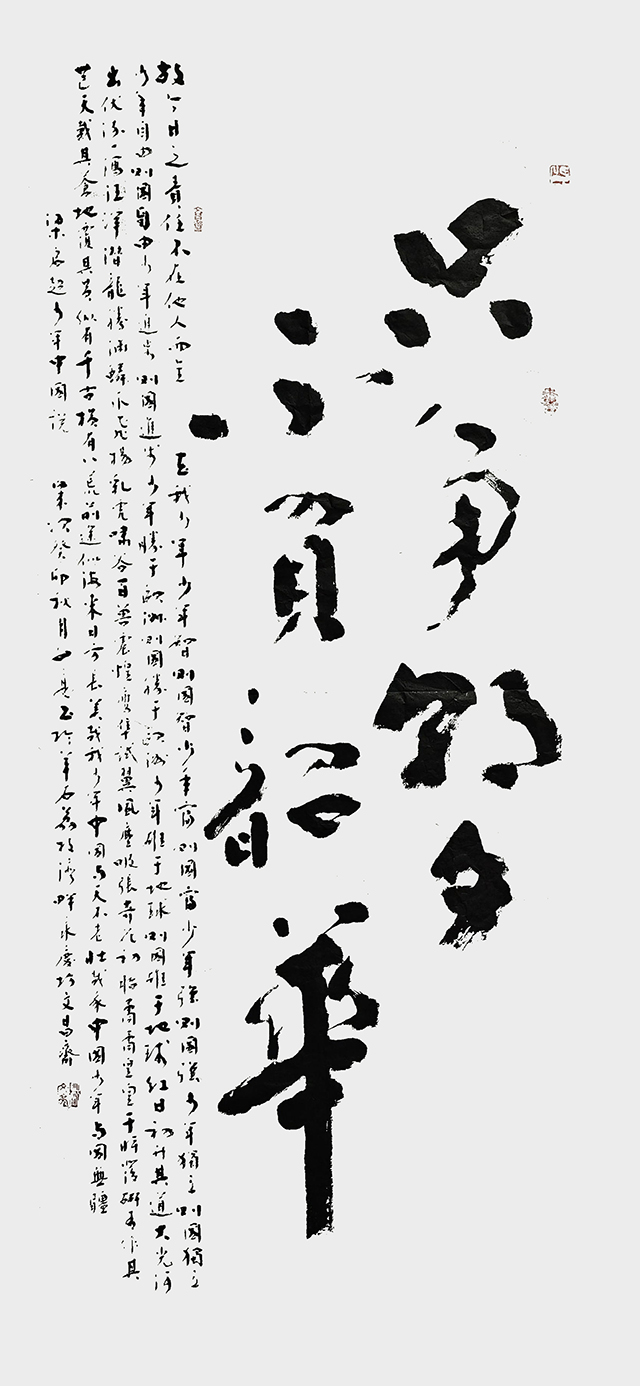 只争朝夕
不負韶華
故今日之責任不在他人而全
在我少年少年智則國智少年富則國富少年強則國強少年獨立則國獨立
少年自由則國自由少年進步則國進步少年勝于歐洲則國勝于歐洲少年雄于地球則國雄于地球紅日初升其道大光河
出伏流一瀉汪洋潛龍騰淵鱗爪飛揚乳虎嘯谷百獸震惶鷹隼試翼風塵吸張奇花初胎矞矞皇皇干將發硎有作其
芒天戴其蒼地履其黃縱有千古橫有八荒前途似海來日方長美哉我少年中國与天不老壯哉我中國少年与國無疆
梁启超少年中國説 歲次癸卯秋月 于羊石荔枝灣畔永慶坊文昌齋